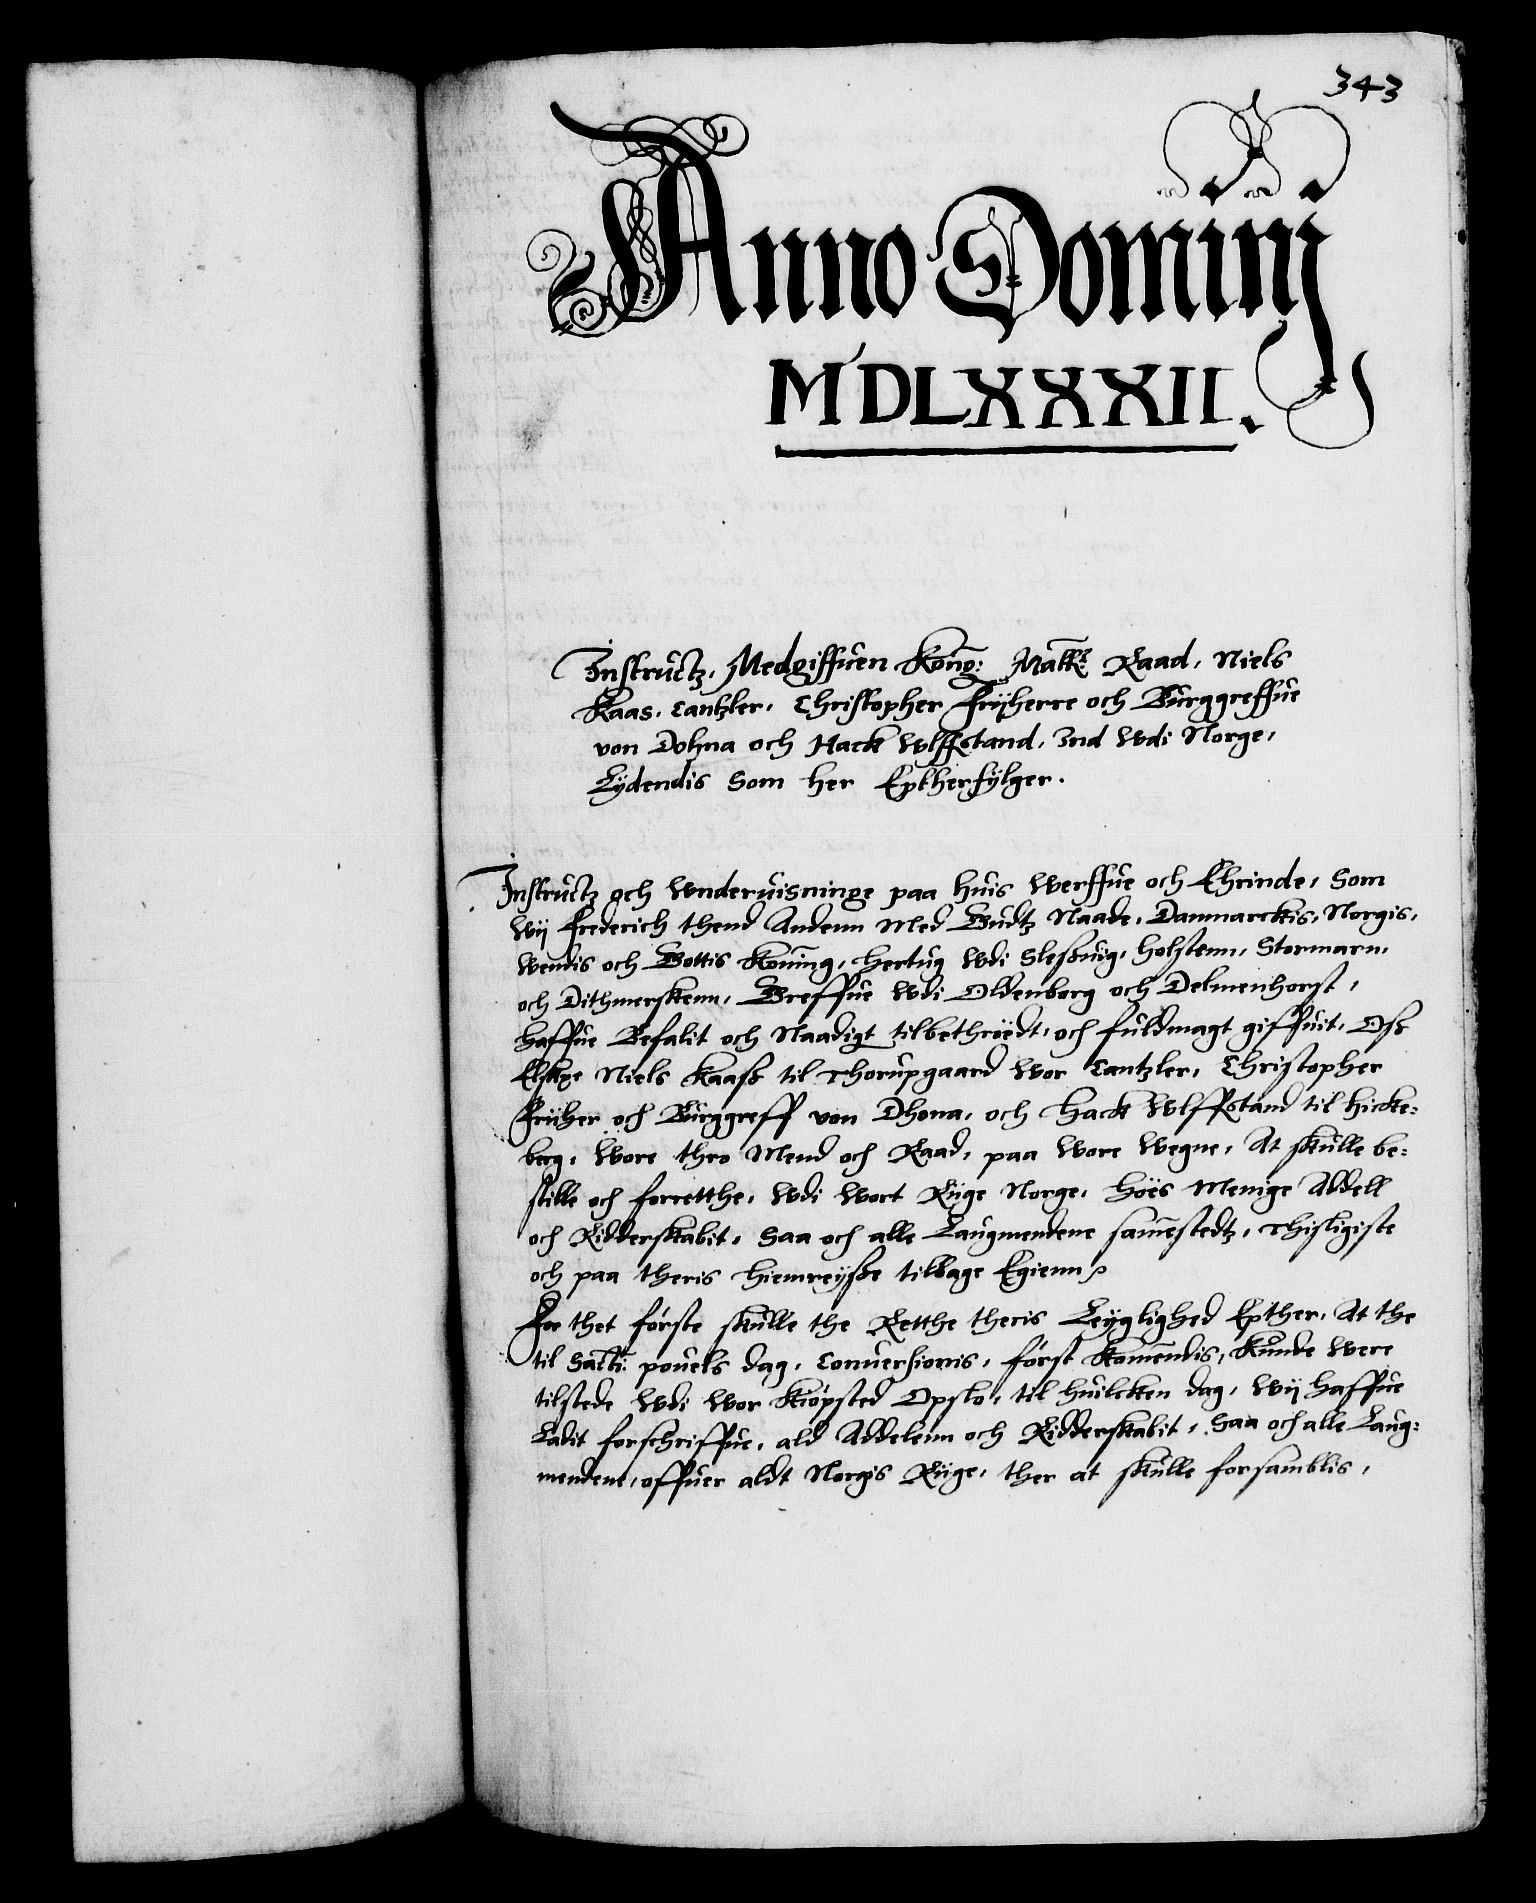 343
Anno Dominj
MDLXXXII.
Instructz, Medgiffuen Kong: Matts Raad, Niels
Kaas, Cantzler, Christopher Frijherre och Burggreffue
von Dohna och Hack Wlffstand, Ind Wdi Norge,
Lydendis Som her Eptherfylger.
Instructz och Wnderuisninge paa huis Werffue och Ehrinde, Som
Wij Frederich thend Andenn Med Gudtz Naade, Danmarckis, Norgis,
Wendis och Gottis Koning, Hertug Wdi Slessuig, Holstenn, Stormarn,
och Dithmerskenn, Greffue Wdi Oldenborg och Delmenhorst,
Haffue Befalit och Naadigt tilbethroedt, och fuldmagt giffuit, Oss
Elske Niels Kaass til Thorupgaard Wor Cantzler, Christopher
Frijher och Burggreff von Dhona, och Hack Wlffstand til Hicke:
berg, Wore thro Mend och Raad, paa Wore Wegne, At skulle be:
stille och forretthe, Wdi Wort Rige Norge, Hoes Menige Addell
och Ridderskabit, Saa och alle Laugmendene samestedtz, Thisligiste
och paa theris Hiemreijsse tilbage Egienn.
For thet første skulle the Retthe theris Leyglighed Epther, At the
til Sancti pouels dag, Conuersionis, først Komendis, Kunde Were
tilstede Wdi Wor Kiøpsted Opslo, til huilcken dag, Wij Haffue
Ladit forschriffue, ald Addelenn och Ridderskabit, Saa och alle Laug:
mendene, offuer aldt Norgis Rige, ther at skulle forsamblis,